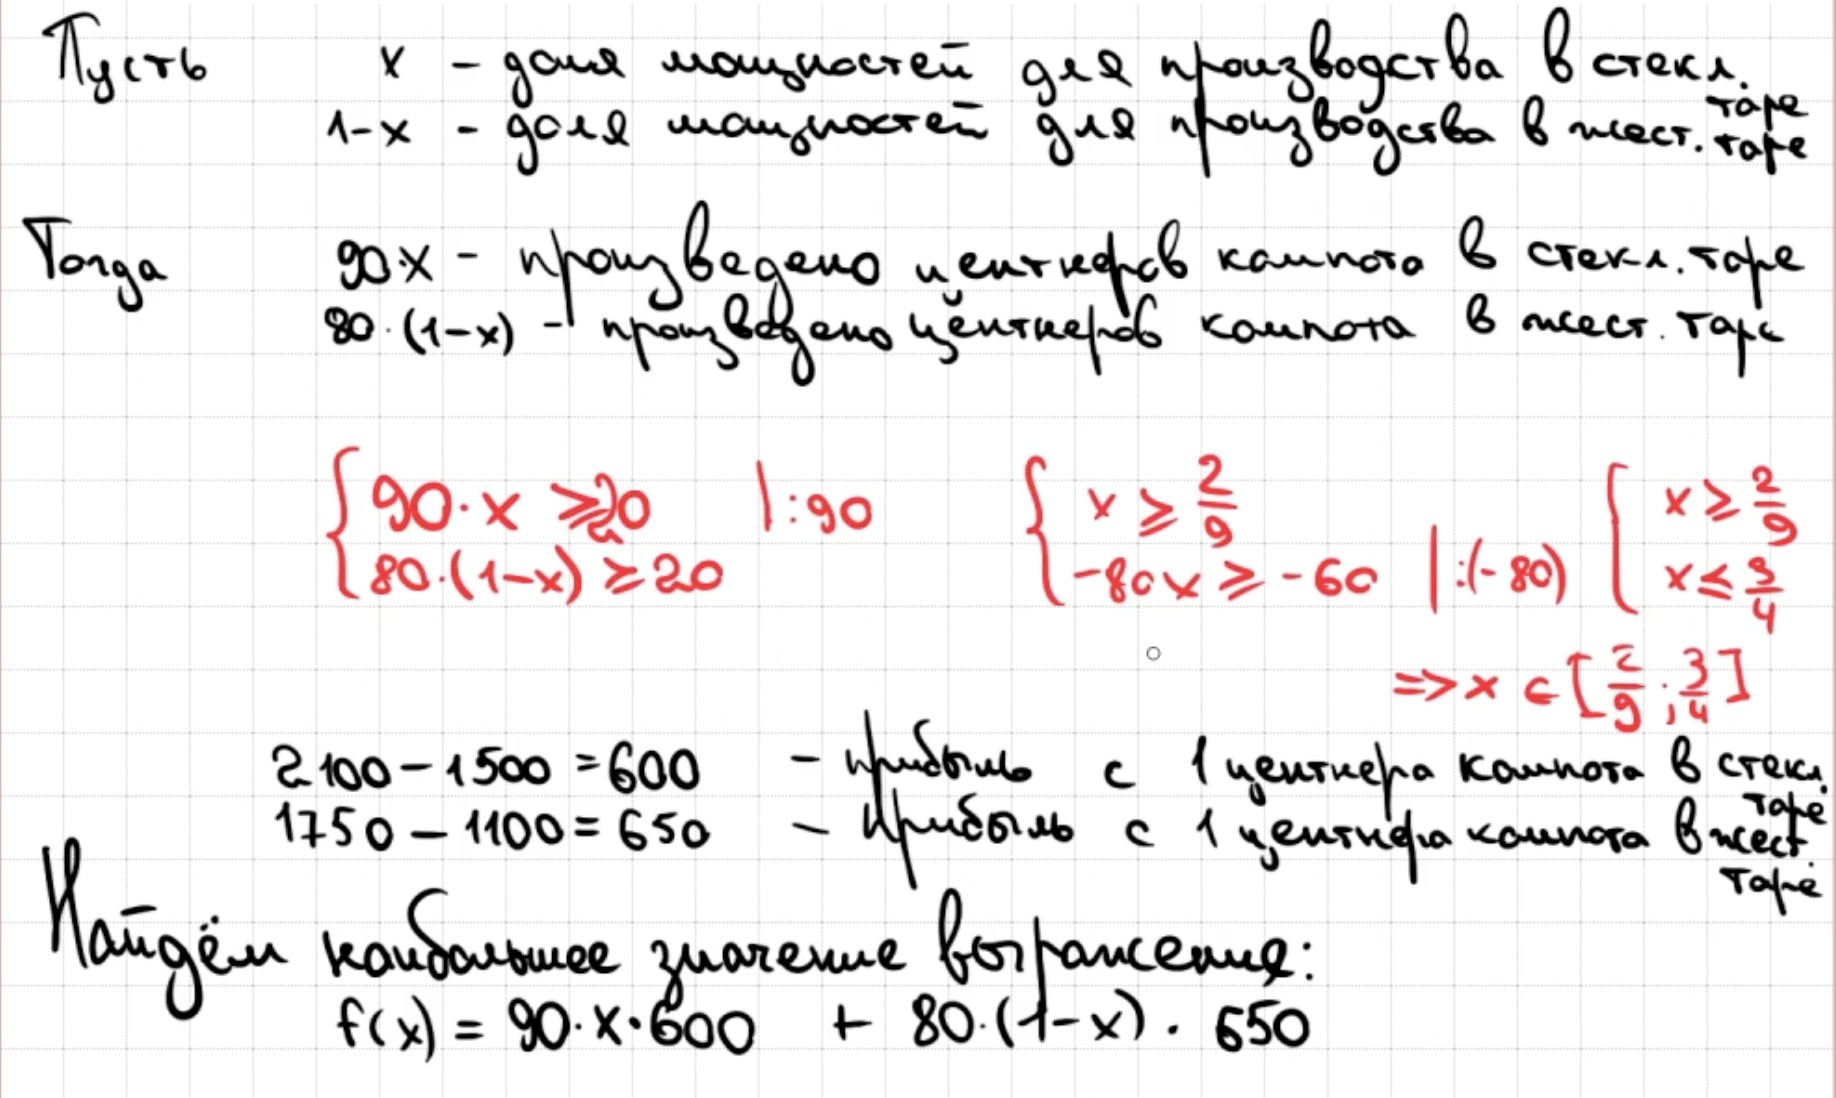 Пусть x – доля мощностей для производства в стекл. таре
1-x – доля мощностей для производства в жест. таре
Тогда 90·x – произведено центнеров компота в стекл. таре
80·(1-x) – произведено центнеров компота в жест. таре
{ 90·x ≥ 20 |:90 { x ≥ 2/9 { x ≥ 2/9
80·(1-x) ≥ 20 -80x ≥ -60 |:(-80) x ≤ 3/4
=> x ∈ [2/9; 3/4]
2100 - 1500 = 600 – прибыль с 1 центнера компота в стекл. таре
1750 - 1100 = 650 – прибыль с 1 центнера компота в жест. таре
Найдём наибольшее значение выражение:
f(x) = 90·x·600 + 80·(1-x)·650